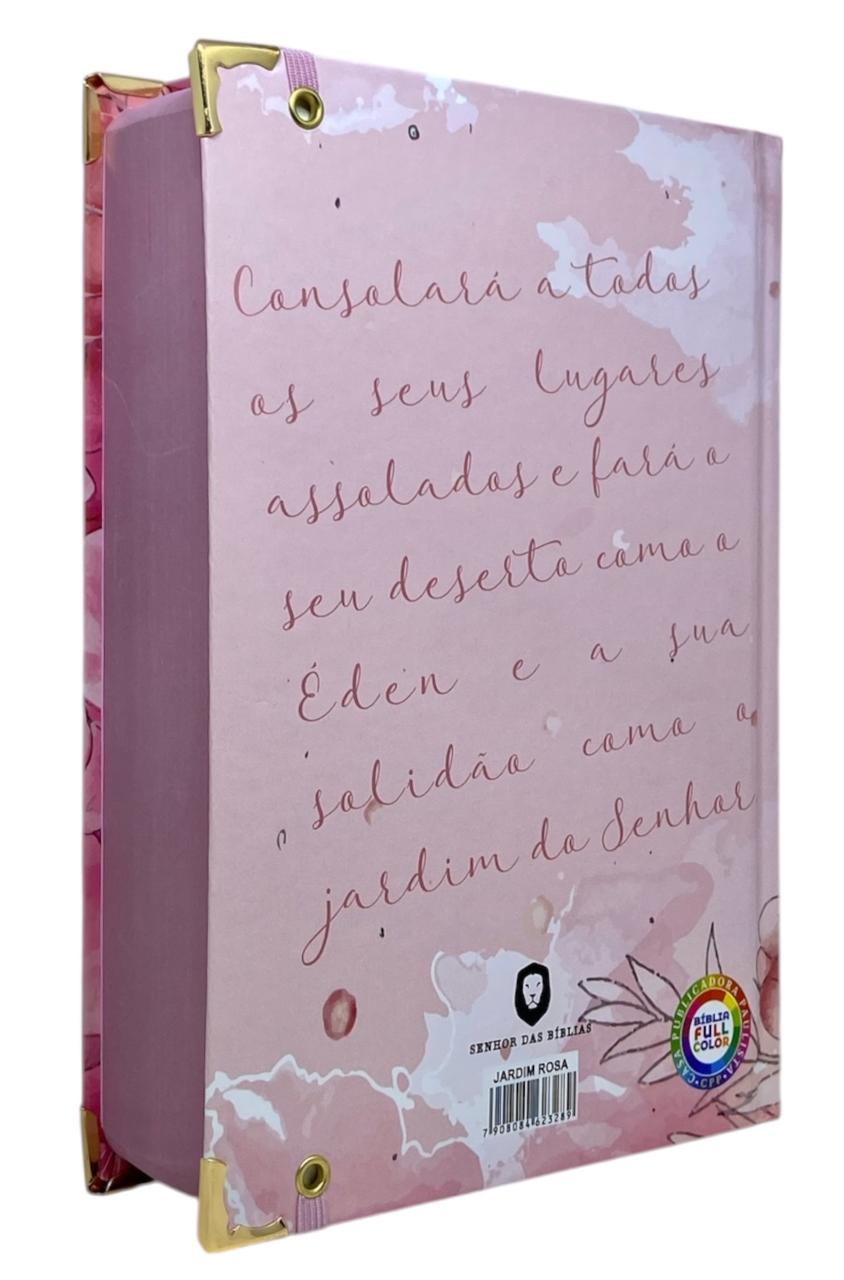 Consolará a todos
os seus lugares
assolados e fará o
seu deserto como o
Éden e a sua
solidão como o
jardim do Senhor
SENHOR DAS BÍBLIAS
JARDIM ROSA
7 908084 623289
CASA PUBLICADORA PAULISTA
BÍBLIA
FULL
COLOR
• CPP •